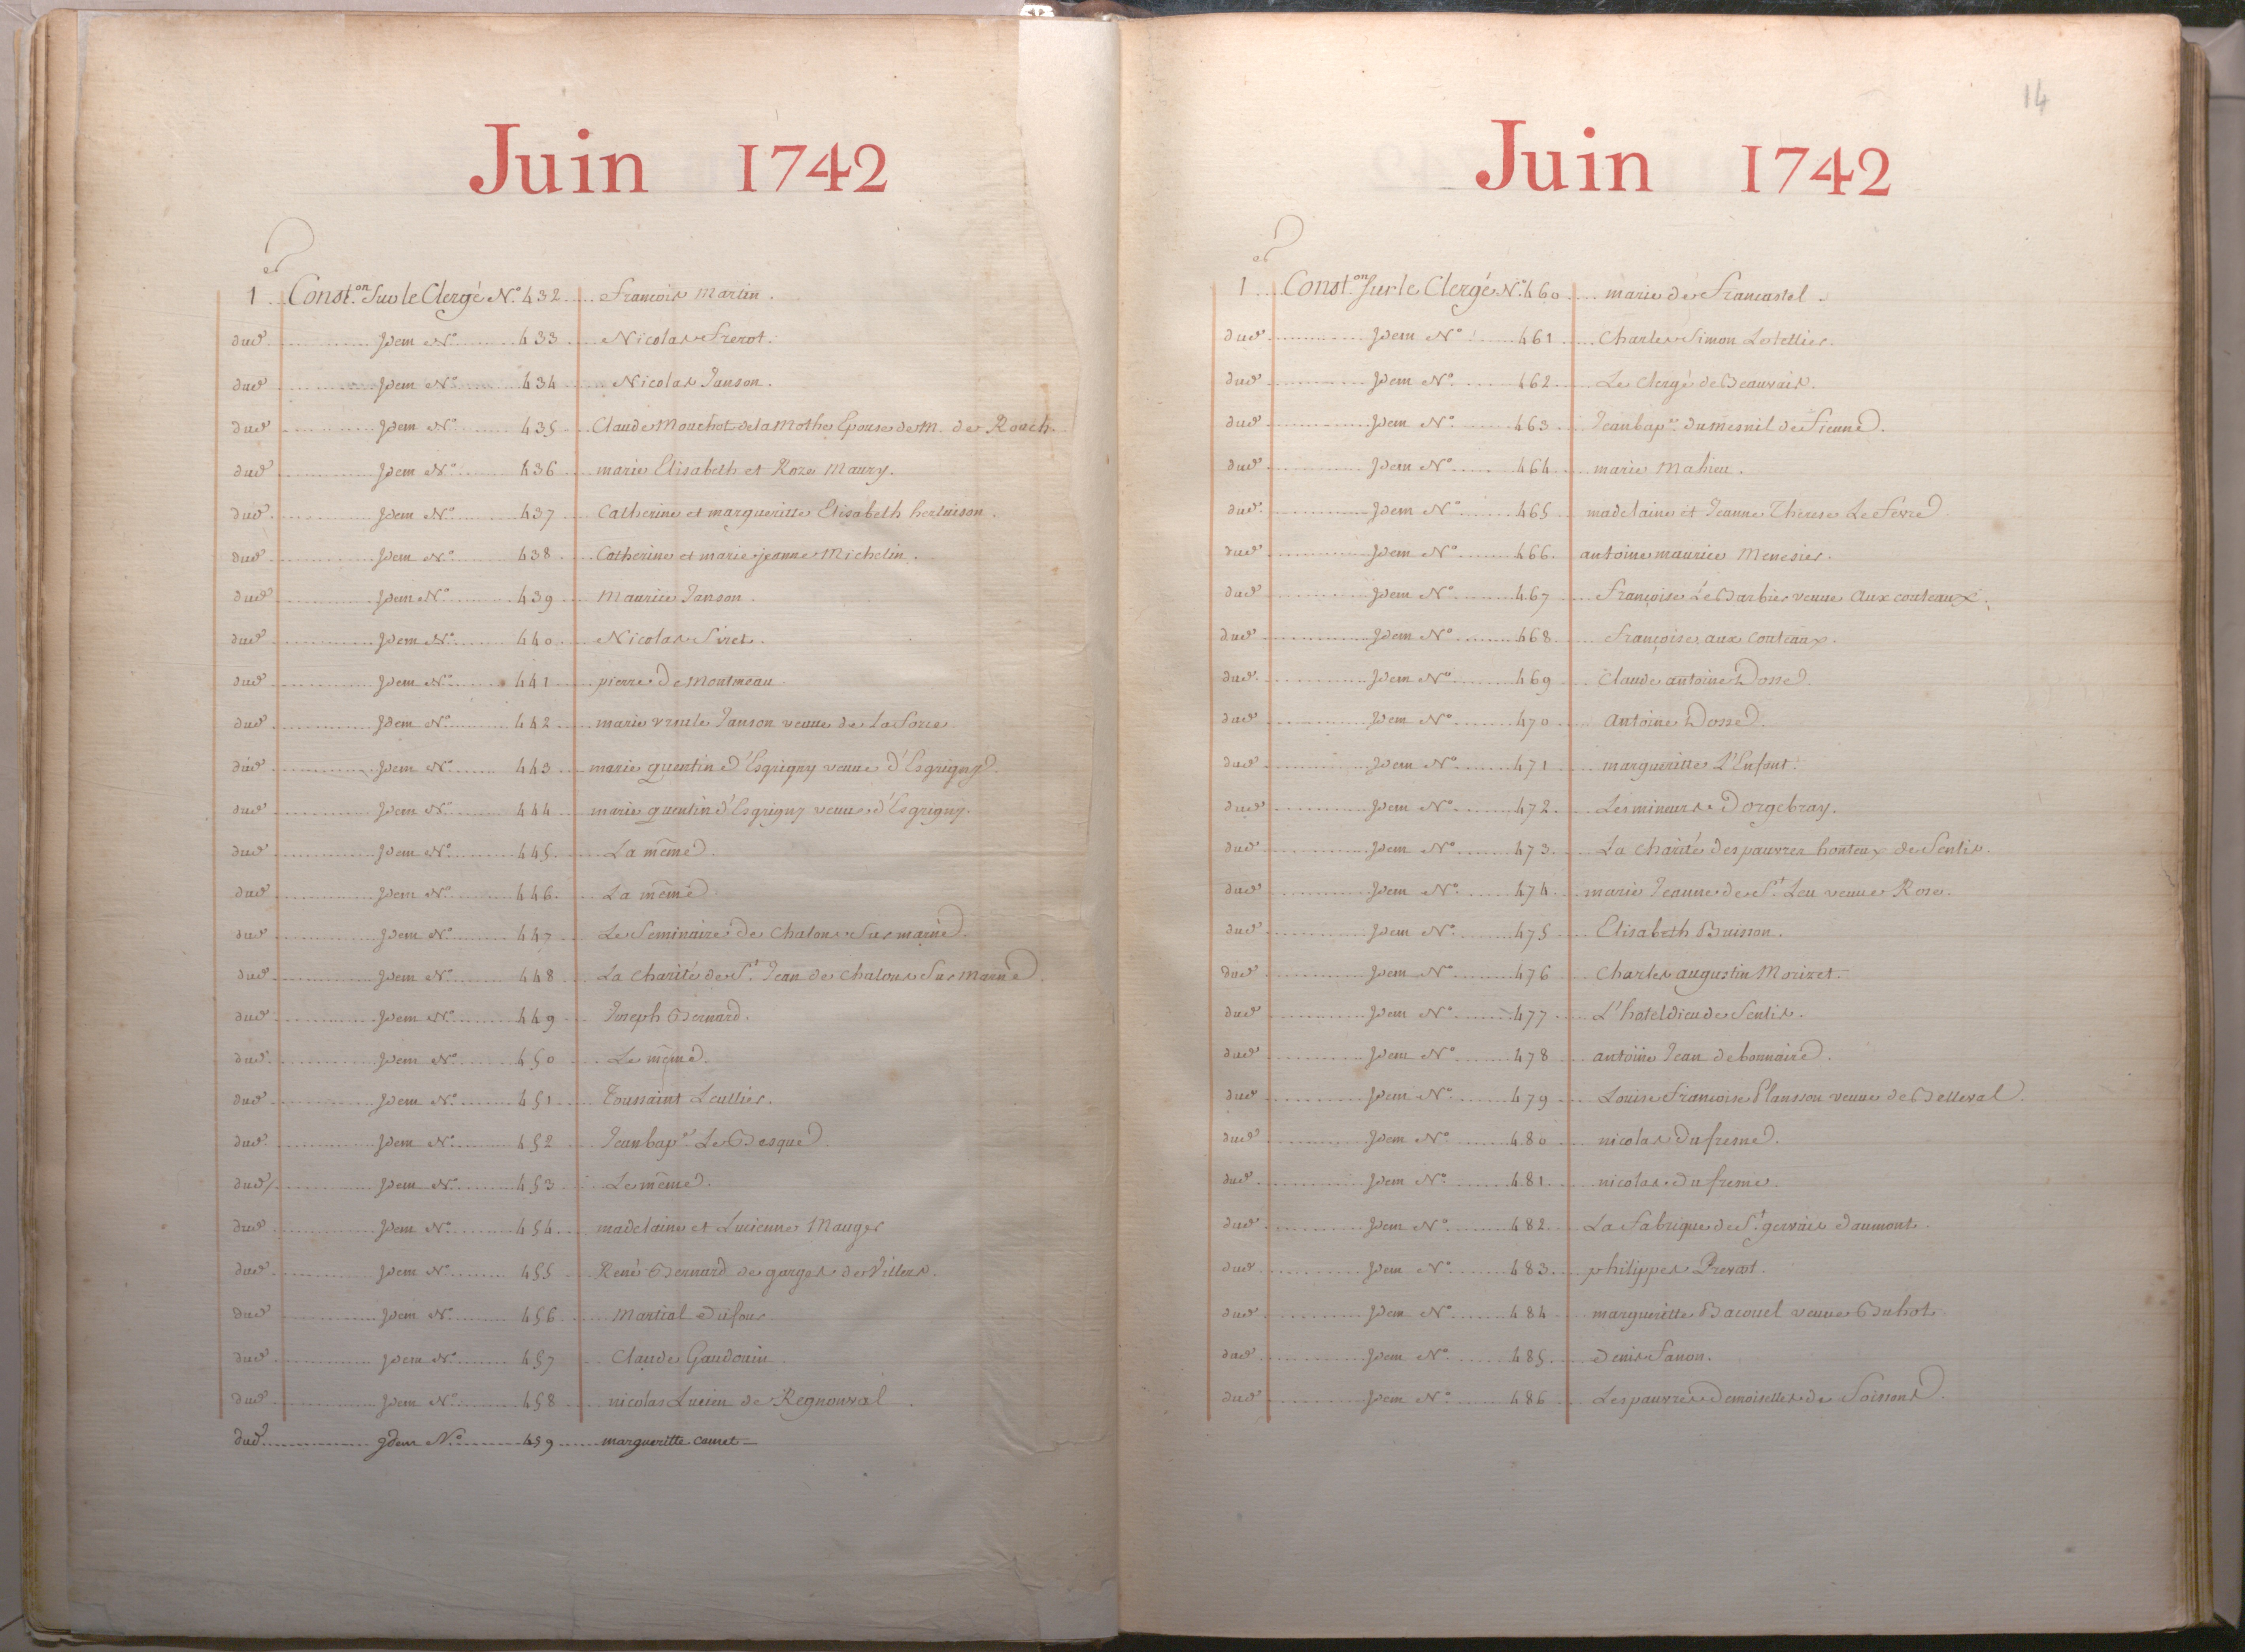 Juin 1742
1er Conston Sur le Clergé No. 432 François Martin.
dud. Idem No. 433 Nicolas Frerot.
dud. Idem No. 434 Nicolas Janson.
dud. Idem No. 435 Claude Mouchot de la Mothe Epouse de M. de Rouch.
dud. Idem No. 436 marie Elisabeth et Roze Maury.
dud. Idem No. 437 Catherine et margueritte Elisabeth herluison.
dud. Idem No. 438 Catherine et marie jeanne Michelin.
dud. Idem No. 439 Maurice Janson.
dud. Idem No. 440 Nicolas Siret.
dud. Idem No. 441 pierre De Montmeau
dud. Idem No. 442 marie ursule Janson veuue de la
dud. Idem No. 443 marie quentin d'Esgrigny veuue d'Esgrigny.
dud. Idem No. 444 marie quentin d'Esgrigny veuue d'Esgrigny.
dud. Idem No. 445 La même.
dud. Idem No. 446 La même
dud. Idem No. 447 Le Seminaire de Chalons Sur marne.
dud. Idem No. 448 La Charité de St. Jean de chalons Sur Marne.
dud. Idem No. 449 Joseph Bernard.
dud. Idem No. 450 Le même.
dud. Idem No. 451 Toussaint Leullier.
dud. Idem No. 452 Jean bapte. Le Besque.
dud. Idem No. 453 Le même.
dud. Idem No. 454 madelaine et Lucienne Mauger
dud. Idem No. 455 René Bernard de garges de Villers.
dud. Idem No. 456 Martial Dufour.
dud. Idem No. 457 Claude Gaudouin
dud. Idem No. 458 nicolas Lucien de Regnonval.
dud. Idem No. 459 margueritte camet
14
Juin 1742
1er Conston Sur le Clergé No. 460 marie de Francastel.
dud. Idem No. 461 Charles Simon Letellier.
dud. Idem No. 462 Le Clergé de Beauvais.
dud. Idem No. 463 Jean bapte. dumesnil de Sienne.
dud. Idem No. 464 marie Mahieu.
dud. Idem No. 465 madelaine et Jeanne Therese Le Fevre
dud. Idem No. 466 antoine maurice Menesier.
dud. Idem No. 467 Françoise Le Barbier veuue Aux couteaux.
dud. Idem No. 468 Françoise aux Couteaux.
dud. Idem No. 469 Claude antoine Dosse.
dud. Idem No. 470 Antoine Dosse.
dud. Idem No. 471 margueritte L'Enfant.
dud. Idem No. 472 Les mineurs Dorgebray.
dud. Idem No. 473 La Charité des pauvres honteux de Senlis.
dud. Idem No. 474 marie Jeanne de St. Leu veuue Rose.
dud. Idem No. 475 Elisabeth Buisson.
dud. Idem No. 476 Charles augustin Morizet.
dud. Idem No. 477 L'hoteldieu de Senlis.
dud. Idem No. 478 antoine Jean debonnaire.
dud. Idem No. 479 Louise Françoise Plansson veuue de Belleval.
dud. Idem No. 480 nicolas Dufresne.
dud. Idem No. 481 nicolas Dufresne.
dud. Idem No. 482 La Fabrique de St. gervais daumont.
dud. Idem No. 483 philippes Prevost.
dud. Idem No. 484 margueritte Bacouel veuue Buhot.
dud. Idem No. 485 Denis Sanon.
dud. Idem No. 486 Les pauvres Demoiselles de Soissons.